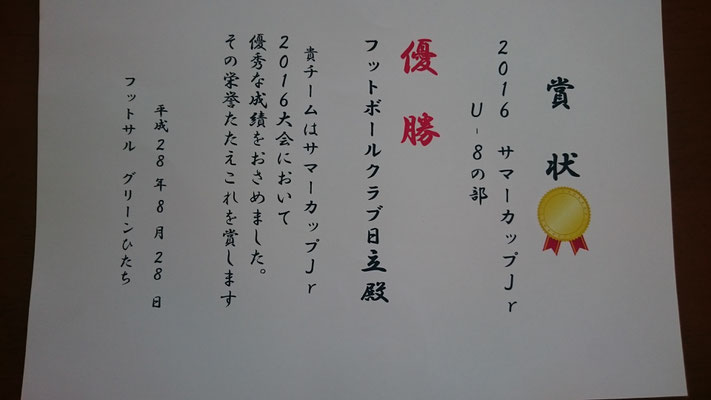 賞状
2016 サマーカップJr
U-8の部
優勝
フットボールクラブ日立殿
貴チームはサマーカップJr
2016大会において
優秀な成績をおさめました。
その栄誉たたえこれを賞します
平成28年8月28日
フットサル グリーンひたち